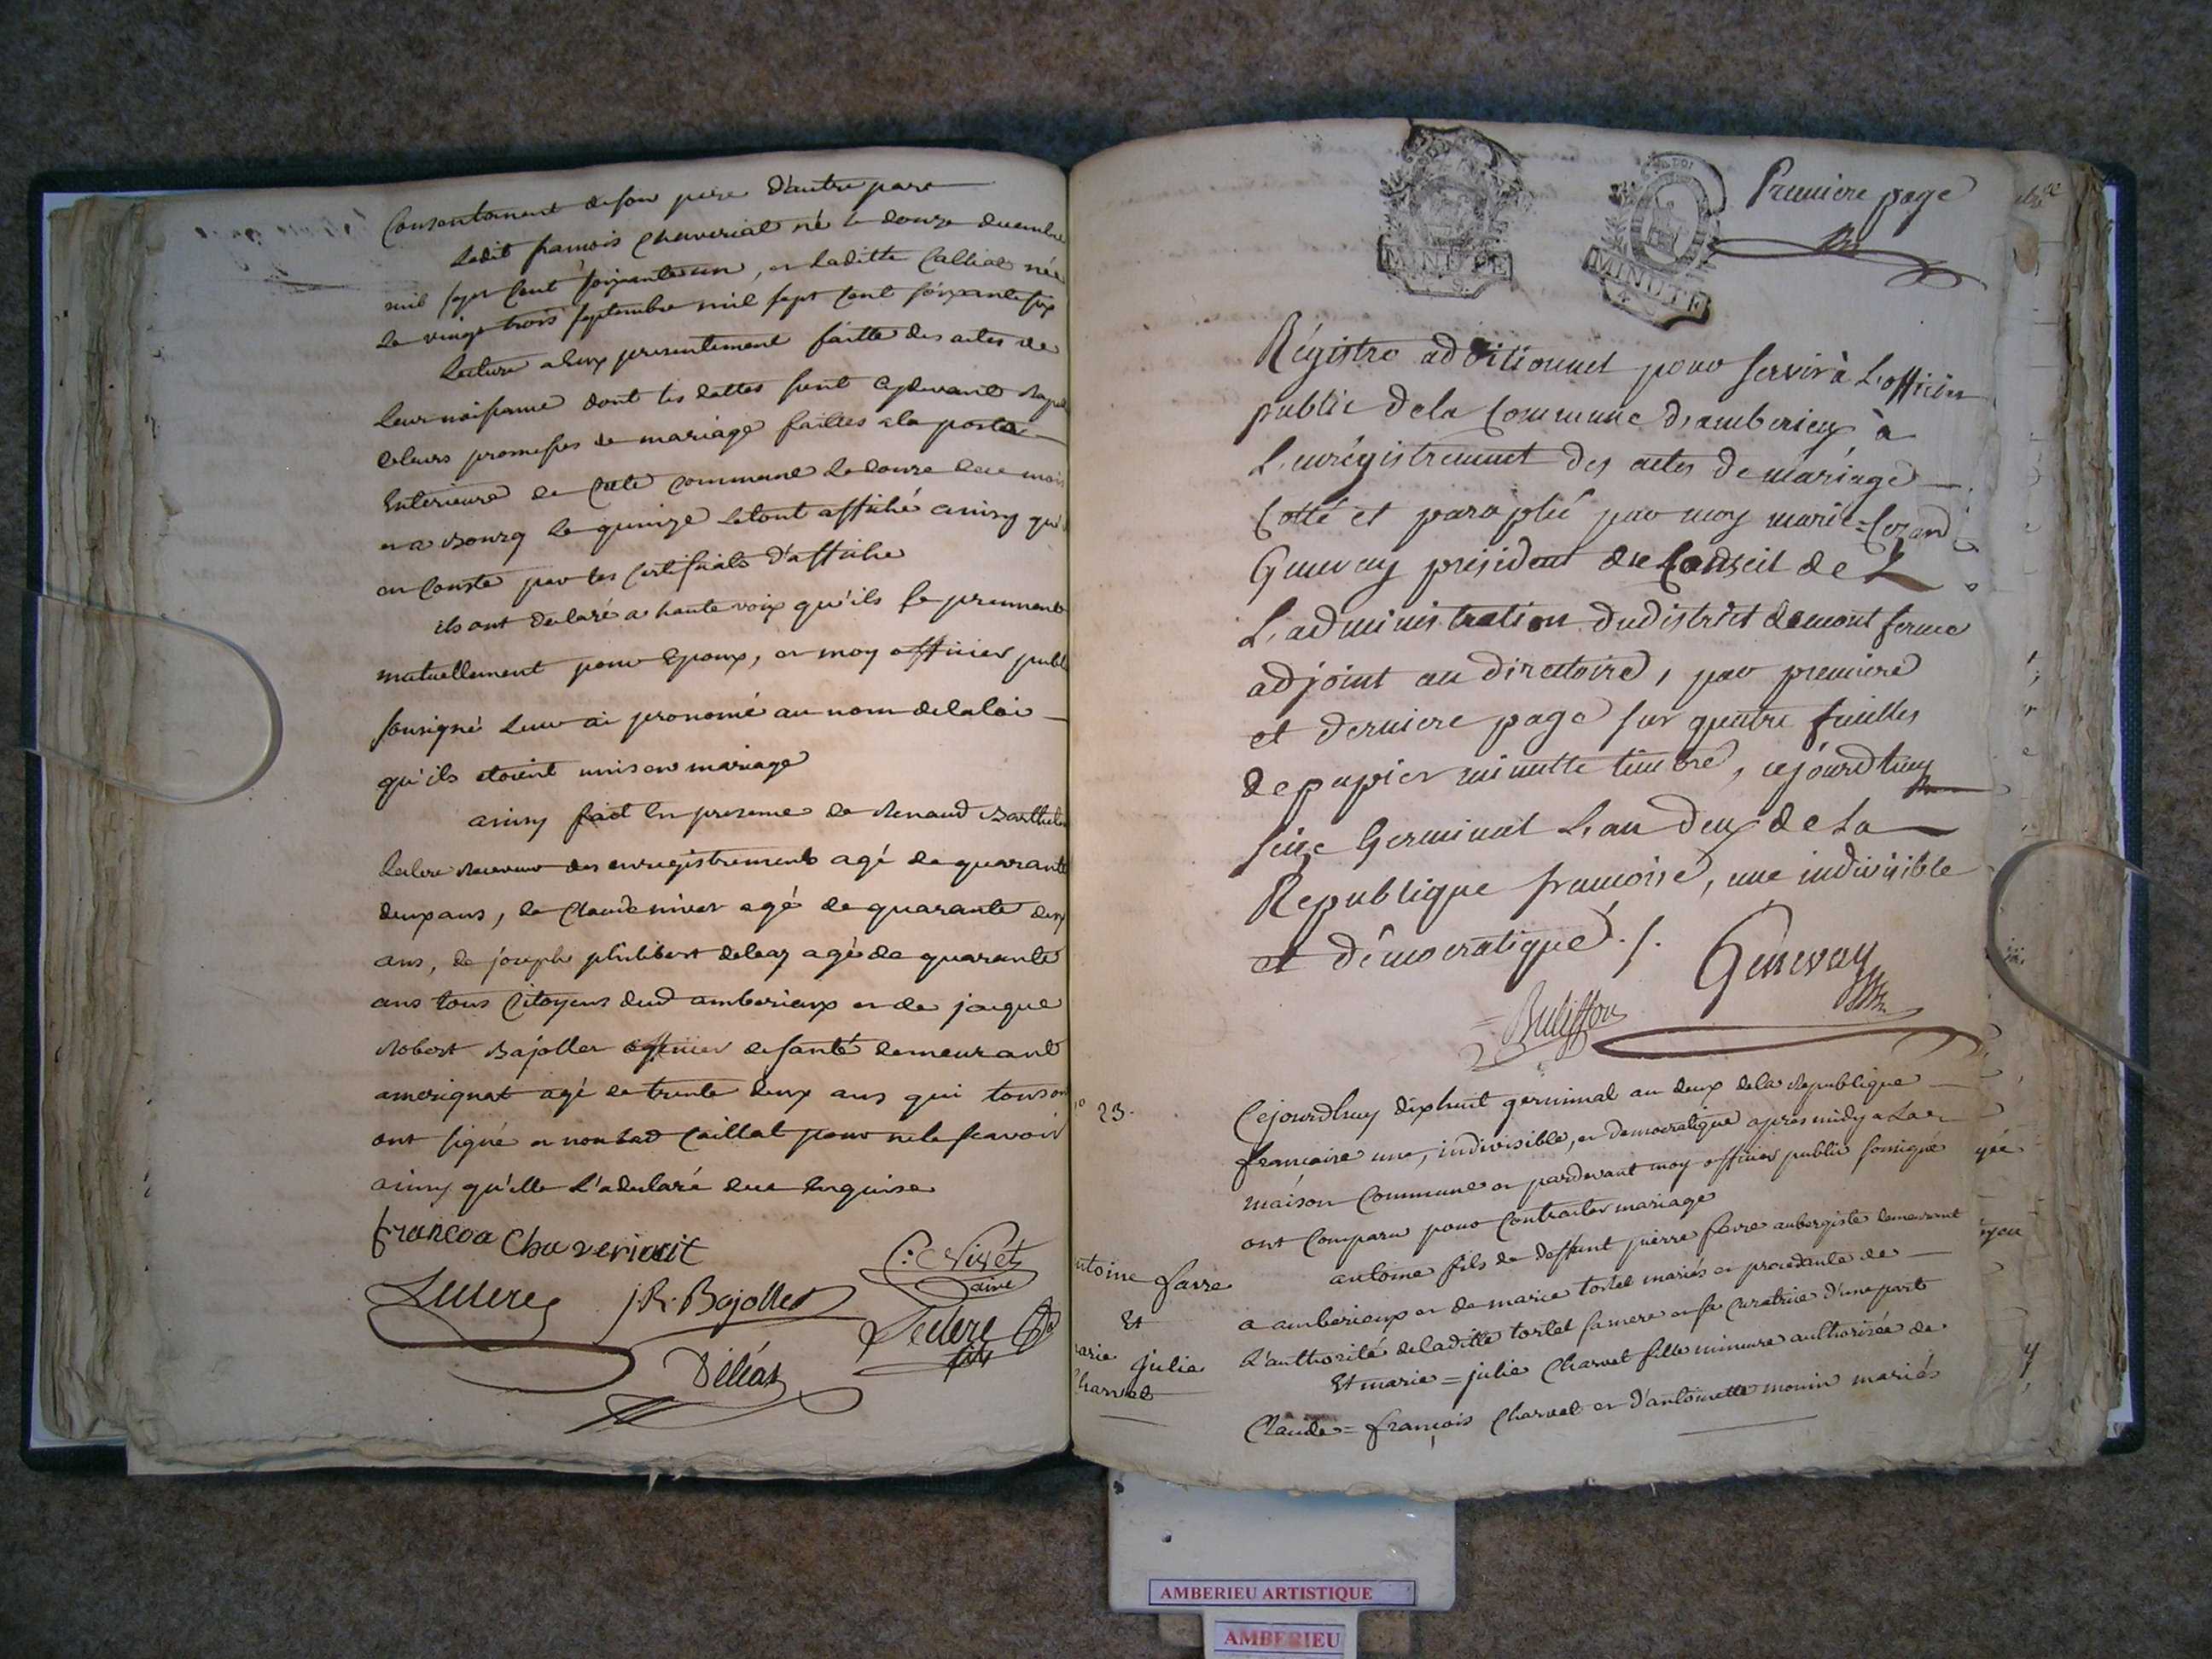 Consentement de son pere d'autre part
Ledit francois Chaveriat né le douze decembre
mil sept Cent soixante un, et Laditte Calliat née
Le vingt trois septembre mil sept Cent soixante six
Lecture a eux presentement faitte des actes de
Leur naissance dont les dattes sont cydevant
deleurs promesses de mariage faittes a la porte
Exterieure de Cette Commune Le douze de ce mois
et a Bourg Le quinze Letout affiché ainsy qu'il
en Conste par les Certificats d'affiche
ils ont declaré a haute voix qu'ils se prennent
mutuellement pour Epoux, et moy officier publi
sousigné Leur ai prononcé au nom delaloi
qu'ils etoient unis en mariage
ainsy fait En presence de Renaud Barthele
Leclerc Receveur des enregistrements agé de quarante
deux ans, de Claude nivet agé de quarante deux
ans, de joseph philibert deleaz agé de quarante
ans tous Citoyens dud amberieux et de jacque
Robert Bajollet officier de santé demeurant
amerignat agé de trente deux ans qui tous
ont signé et non Lad Caillat pour ne le scavoir
ainsy qu'elle L'a declaré dece Enquise
francoa Chaveriait
C. Nivet
ainé
Leclerc J. R. Bajollet
Leclerc
fils
Déléaz
MINUTE
MINUTE
Premiere page
Régistre additionnel pour servir à L'officier
public dela Commune d'amberieux à
L'enrégistrement des actes de mariage
Cotté et paraphé par moy marie=
Genevay président de Conseil de L
L'administration dudistrict demont ferme
adjoint au directoire, par premiere
et derniere page sur quatre fuilles
depapier minutte timbré, cejourdhuy
seize Germinal L'an deux de La
Republique francoise, une indivisible
et démocratique ./.
Genevay
Bulisson
23.
Cejourdhuy dixhuit germinal an deux dela Republique
francaise une, indivisible, et democratique apres midy a La
maison Commune et pardevant moy officier public sousigné
ont Comparu pour Contracter mariage
antoine fils de deffunt pierre favre aubergiste demeurant
a amberieux et de marie tortel mariés et procedante de
L'authorité deladitte tortel samere et sa Curatrice d'une part
Et marie=julie Charvet fille mineure authorisée de
Claude=francois Charvet et d'antoinette monin mariés
ntoine favre
Et
arie julie
harvet
AMBERIEU ARTISTIQUE
AMBERIEU